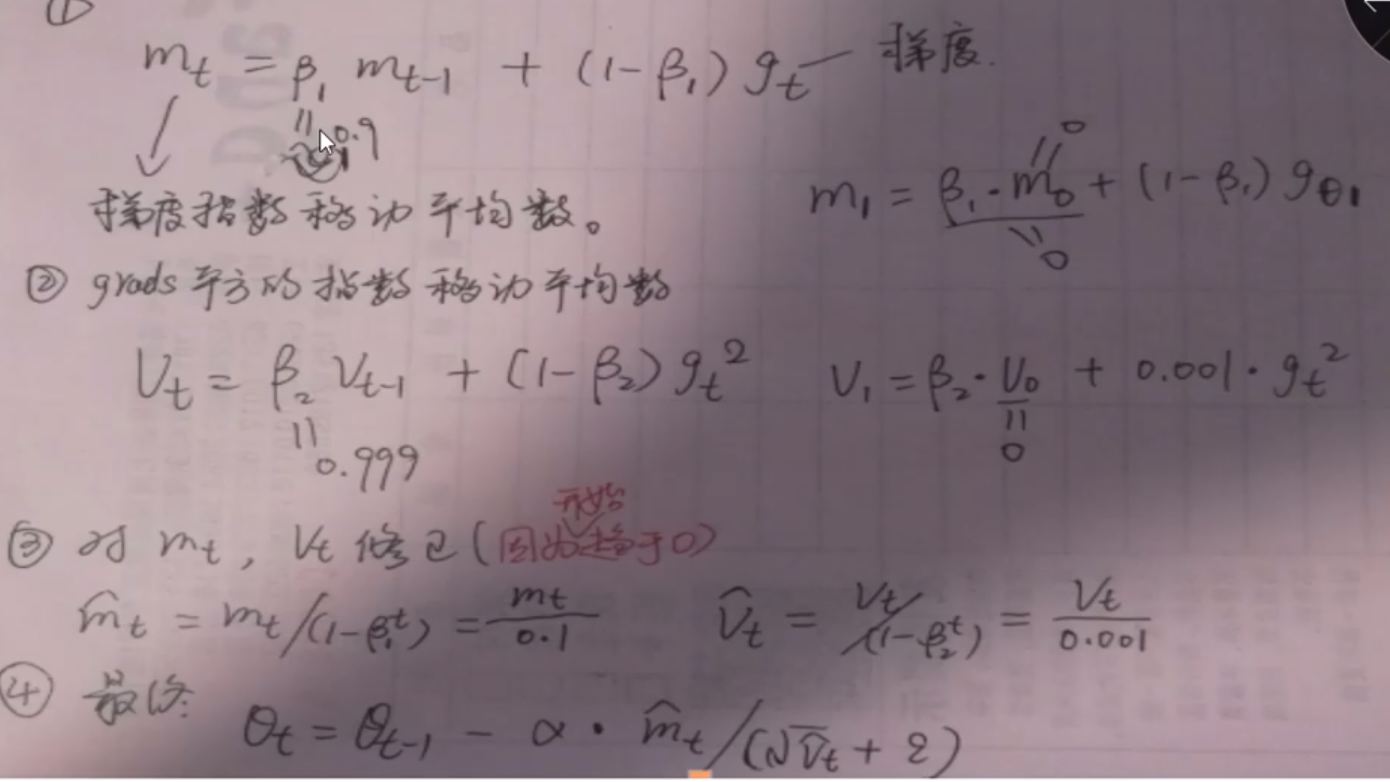 ①
m_t = β₁ m_{t-1} + (1-β₁) g_t — 梯度.
= 0.9
m₁ = β₁·m₀ + (1-β₁) g_{θ1}
= 0
= 0
梯度指数移动平均数。
② grads平方的指数移动平均数
V_t = β₂ V_{t-1} + (1-β₂) g_t²
= 0.999
V₁ = β₂·V₀ + 0.001·g_t²
= 0
③ 对 m_t, V_t 修正(因为开始趋于0)
m̂_t = m_t/(1-β₁ᵗ) = m_t/0.1
V̂_t = V_t/(1-β₂ᵗ) = V_t/0.001
④ 最终:
θ_t = θ_{t-1} - α·m̂_t/(√V̂_t + ε)